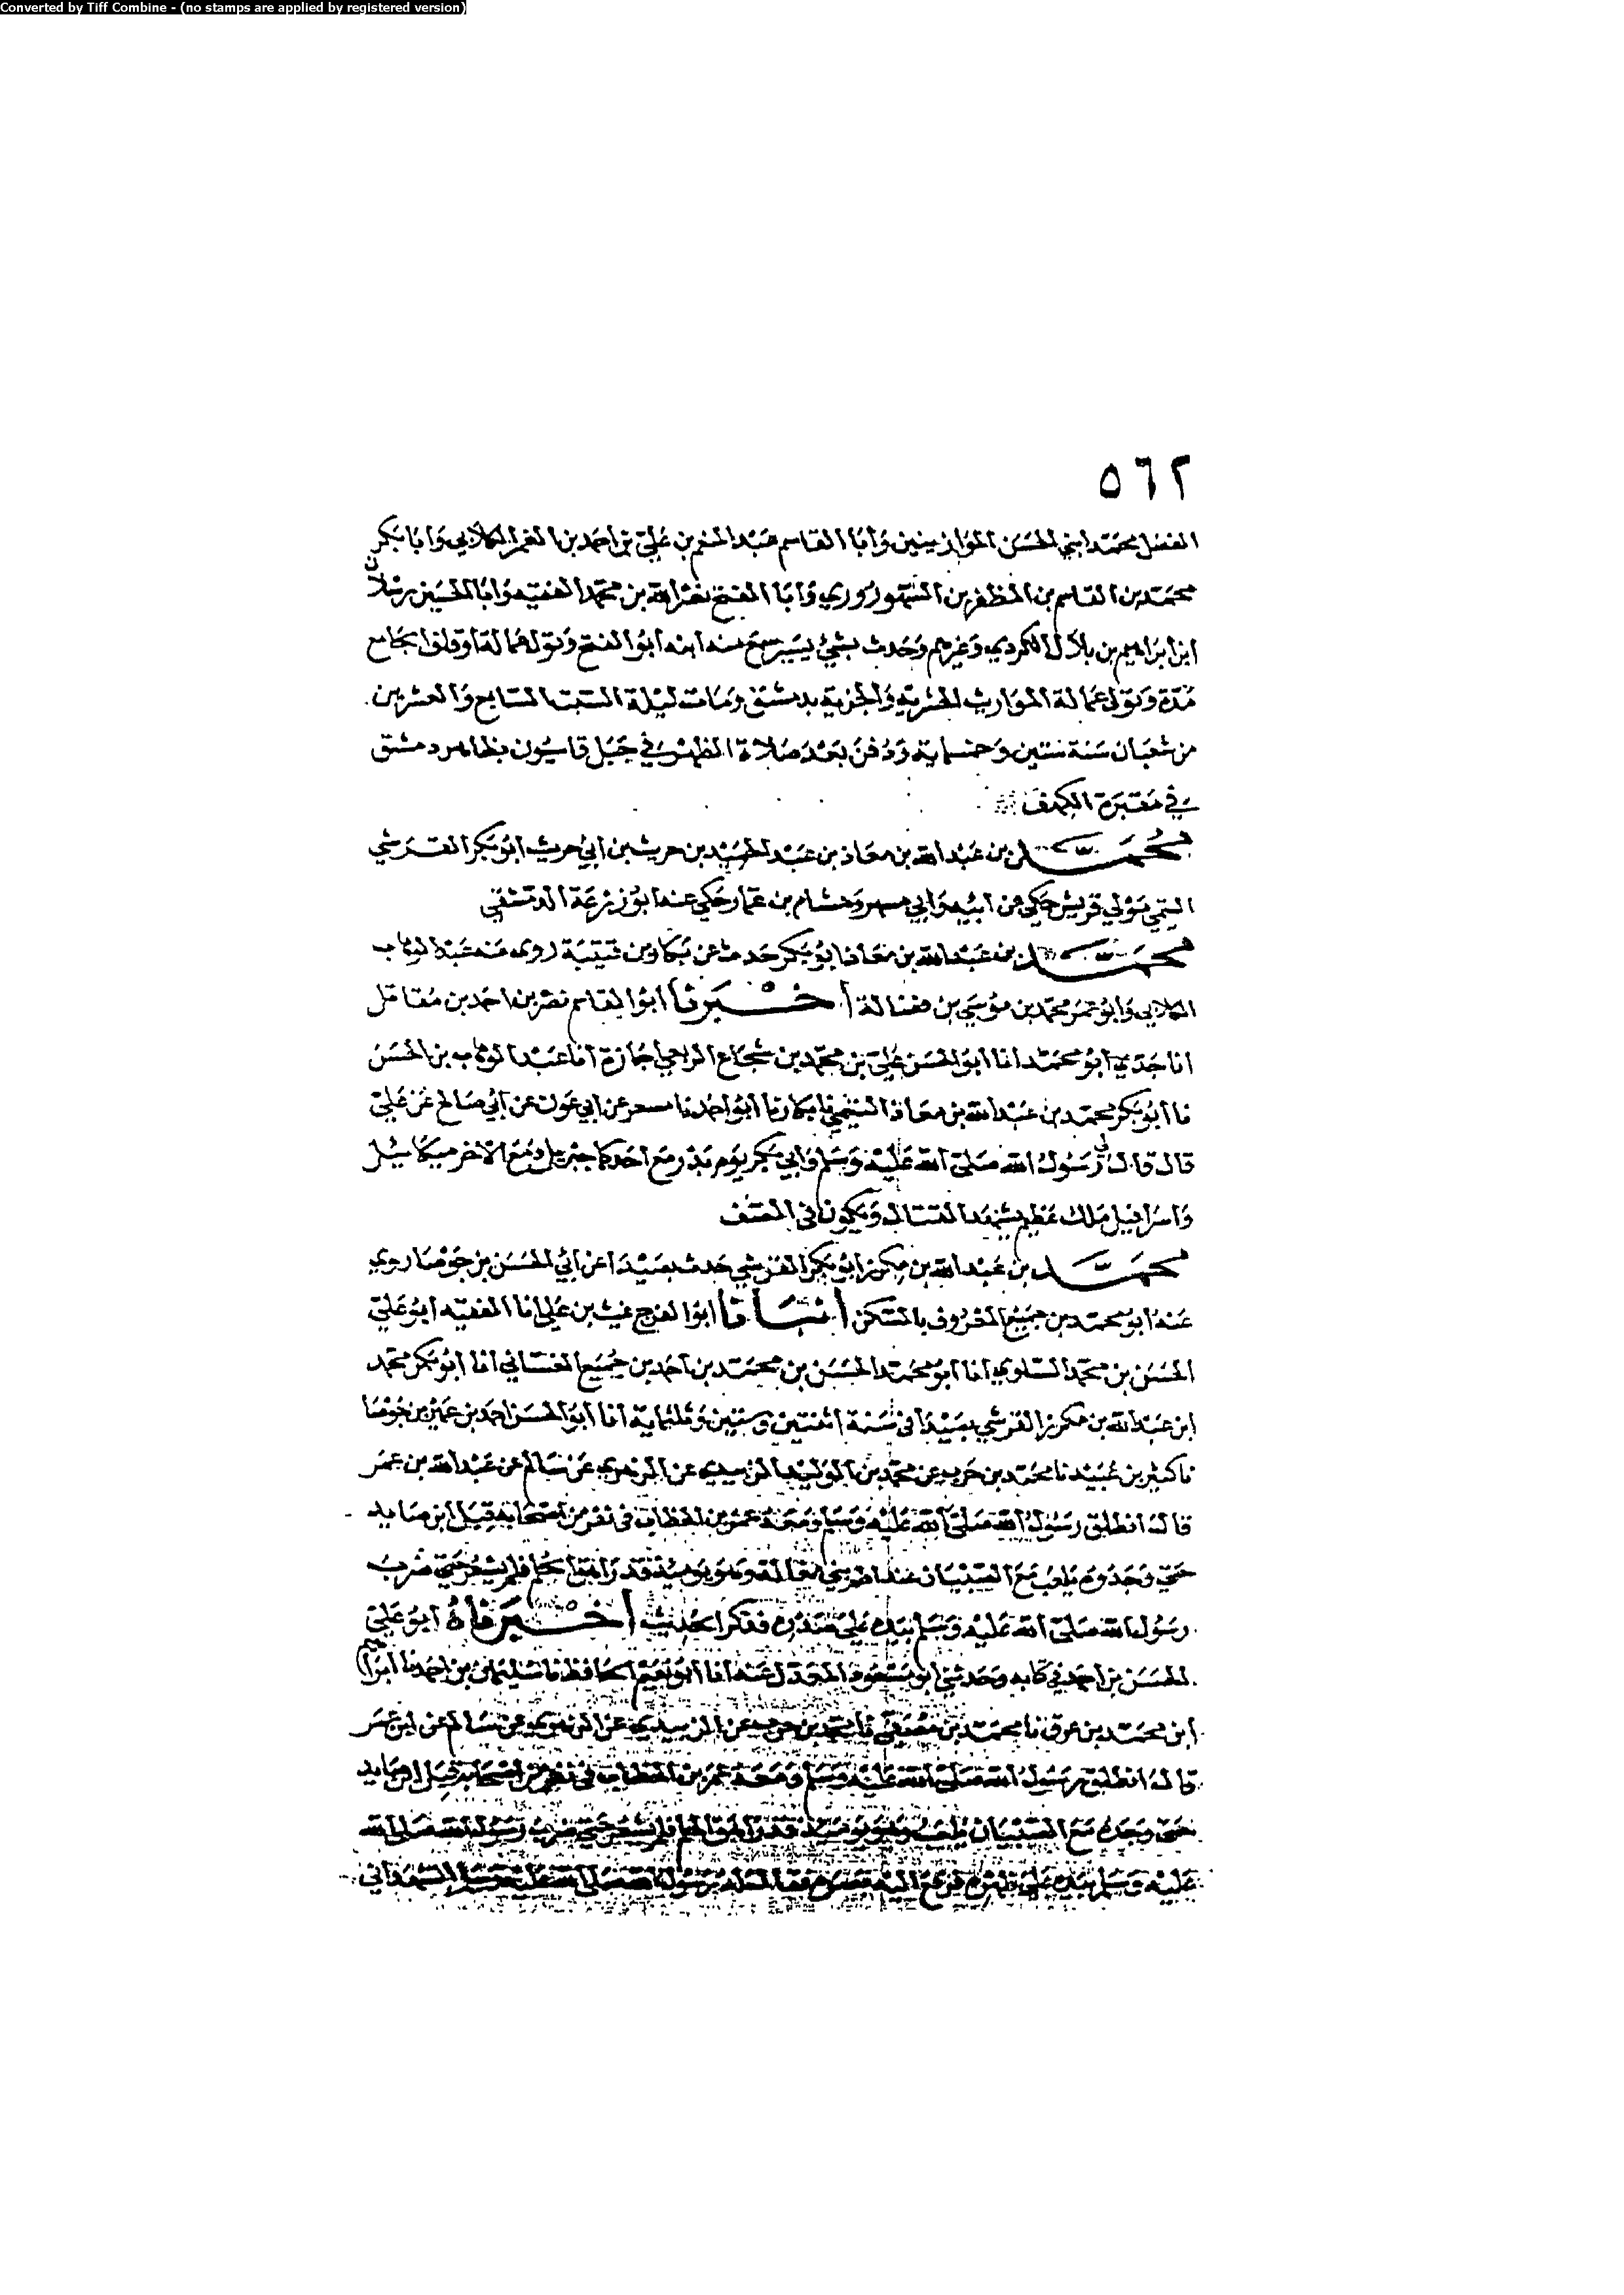 Converted by Tiff Combine - (no stamps are applied by registered version)
٥٦٢
الفضل محمد ابني الحسن الموازينيين وَابَا القاسم عبد المنعم بن علي بن احمد بن الغمر الكلابي وَابا بكر
محمد بن القاسم بن المظفر بن الشهرزوري وَابَا الفتح نصر الله بن محمد الفقيه وَابَا الحسين رسلان
ابن ابراهيم بن بلال الكردي وَغيرهم وَحدث بشيء يسير سمع منه ابنه ابو الفتح وَتولى عمالة اوقاف الجامع
مُدة وَتولى عمالة المواريث الحشرية وَالجزية بدمشق وَمَات ليلة السبت السابع وَالعشرين
من شعبان سَنة ستين وَخمسماية وَدُفن بَعْد صَلاة الظهر في جَبل قاسيون بظاهر دمشق
في مَقبرة الكهف
محمد بن عَبْد الله بن معَاذ بن عَبْد الحميد بن حريث بن ابي حريث ابو بَكر القرشي
التيمي مَوْلي قريش حَكي عن ابيه وَابي مسهر وَهشام بن عمار حَكي عنه ابو زرعَة الدمشقي
محمد بن عَبْد الله بن مَعَاذ ابو بَكر حَدث عن بَكار بن قتيبَة روى عَنه عَبْد الوهاب
الكلابي وَابو عمر محمد بن موسَي بن فضالة اخبرنا ابو القاسم نصر بن احمد بن مُقاتل
انا جَدي ابو محمد انا ابو الحسَن علي بن محمد بن شجاع الربعي اجازة انا عَبْد الوهاب بن الحسَن
نا ابو بَكر محمد بن عَبْد الله بن مَعَاذ التيمي نا بكار نا ابو احمد نا مسعر عن ابي عَون عن ابي صَالح عَن عَليّ
قال قال لي رَسُول الله صَلى الله عَليْه وَسَلم وَلابي بَكر يَوم بَدْر مَع احَدكما جبريل وَمَع الاخر ميكائيل
وَاسرافيل مَلك عَظيم يشهَد القتال وَيَكون في الصَف
محمد بن عَبْد الله بن مكرز ابو بَكر القرشي حَدث بصَيْدَا عن ابي الحسَن بن جَوْصَا روي
عَنه ابو محمد بن جميع المعروف بالسَكن انبانا ابو الفرج غيث بن علي انا الفقيه ابو عَليّ
الحسَن بن محمد السلوي انا ابو محمد الحسَن بن محمد بن احمد بن جُمَيع الغسَاني انا ابو بَكر محمد
ابن عَبْد الله بن مكرز القرشي بصَيْدَا في سَنة اثنتين وستين وَثلثماية انا ابو الحسَن احمد بن عمير بن جَوْصَا
نا كثير بن عُبَيْد نا محمد بن حَرب عن محمد بن الوَليد الزبيدي عن الزهري عَن سَالم عن عَبْد الله بن عمَر
قال انطلق رَسُول الله صَلى الله عَليْه وَسَلم وَمَعَه عمر بن الخطاب في نفر من اصحَابه قبَل ابن صَايد
حَتى وَجَدُوه يلعَب مَعَ الصبيَان عند اطم بني مغالة وَهوَ يومَئذ قد رَاهق الحُلم فلم يشعر حَتي ضرب
رَسُول الله صَلى الله عَليْه وَسَلم بيَده عَلي صَدره فذكر الحديث اخبرناهُ ابو عَليّ
الحسَن بن احمد في كتابه وَحَدثني ابو مسعود المعدل عَنه انا ابو نعيم الحَافظ نا سُليمن بن احمد نا ابراهيم
ابن محمد بن عرق نا محمد بن مصفي نا محمد بن حرب عن الزبيدي عن الزهري عن سَالم عن ابن عمَر
قال انطلق رَسُول الله صَلى الله عَليْه وَسَلم وَمَعَه عمر بن الخطاب في نفر من اصحَابه قبَل ابن صَايد
حَتى وَجَده مَع الصبيَان يلعَب وَهوَ يومَئذ قد رَاهق الحلم فلم يشعر حَتي ضرب رَسُول الله صَلى الله
عَليْه وَسَلم بيَده عَلي ظهره فرفع اليه بَصره فقال له رَسُول الله صَلى الله عَليه وَسَلم اتشهد اني